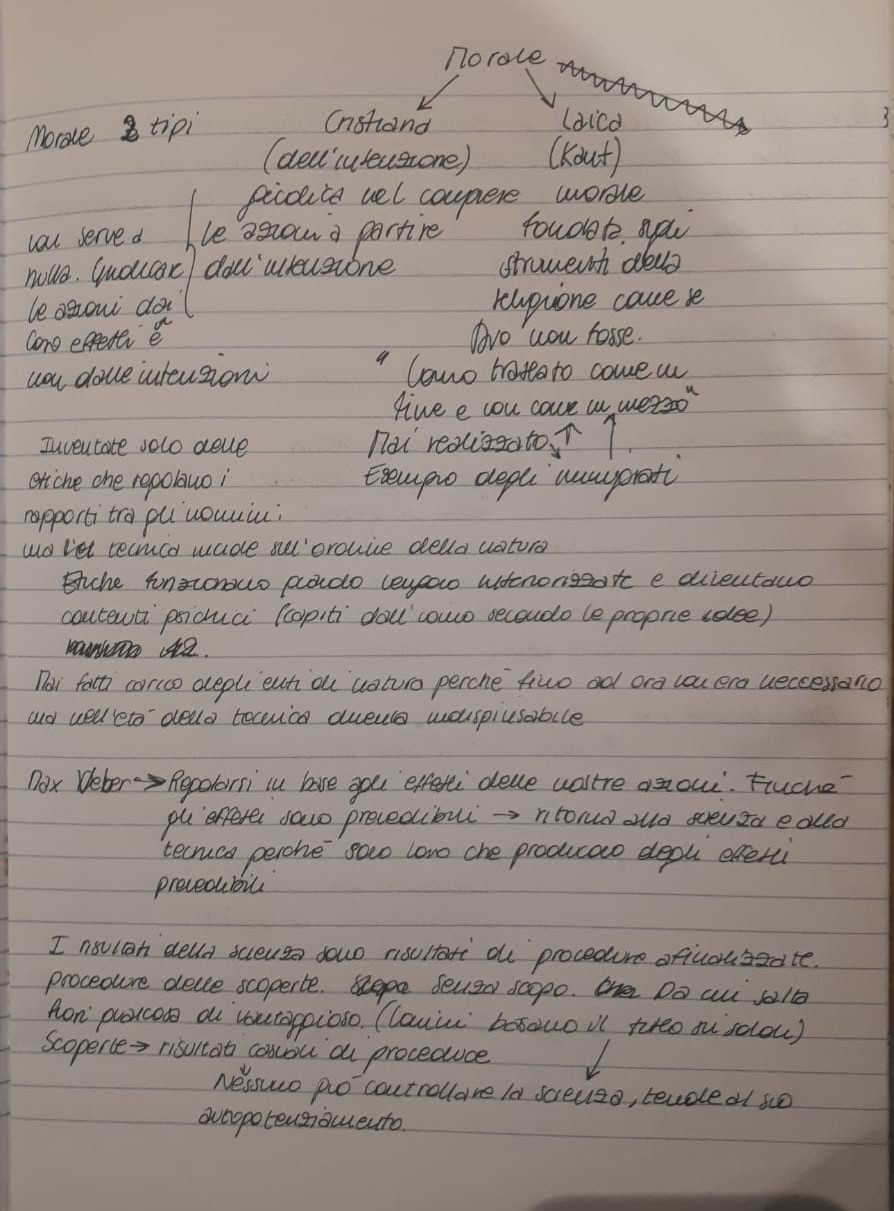 Morale
Morale 2 tipi
Cristiana
(dell'intenzione)
giudica nel compiere
le azioni a partire
dall'intenzione
non serve a
nulla. Giudicare
le azioni dai
loro effetti è
non dalle intenzioni
Laica
(Kant)
morale
fondata sugli
strumenti della
religione come se
Dio non fosse.
"Uomo trattato come un
fine e non come un mezzo"
Mai realizzato
Esempio degli immigrati
Inventate solo delle
etiche che regolano i
rapporti tra gli uomini;
ma tecnica incide sull'ordine della natura
Etiche funzionano quando vengono interiorizzate e diventano
contenuti psichici (capiti dall'uomo secondo le proprie idee)
Mai fatti carico degli enti di natura perché fino ad ora non era neccessario
ma nell'età della tecnica diventa indispensabile
Max Weber → Regolarsi in base agli effetti delle nostre azioni. Finché
gli effetti sono prevedibili → ritorna alla scienza e alla
tecnica perché sono loro che producono degli effetti
prevedibili
I risultati della scienza sono risultati di procedure afinalizzate.
procedure delle scoperte. Senza scopo. Da cui salta
fuori qualcosa di vantaggioso. (Uomini basano il tutto sui soldi)
Scoperte → risultati casuali di procedure
Nessuno può controllare la scienza, tende al suo
autopotenziamento.
3